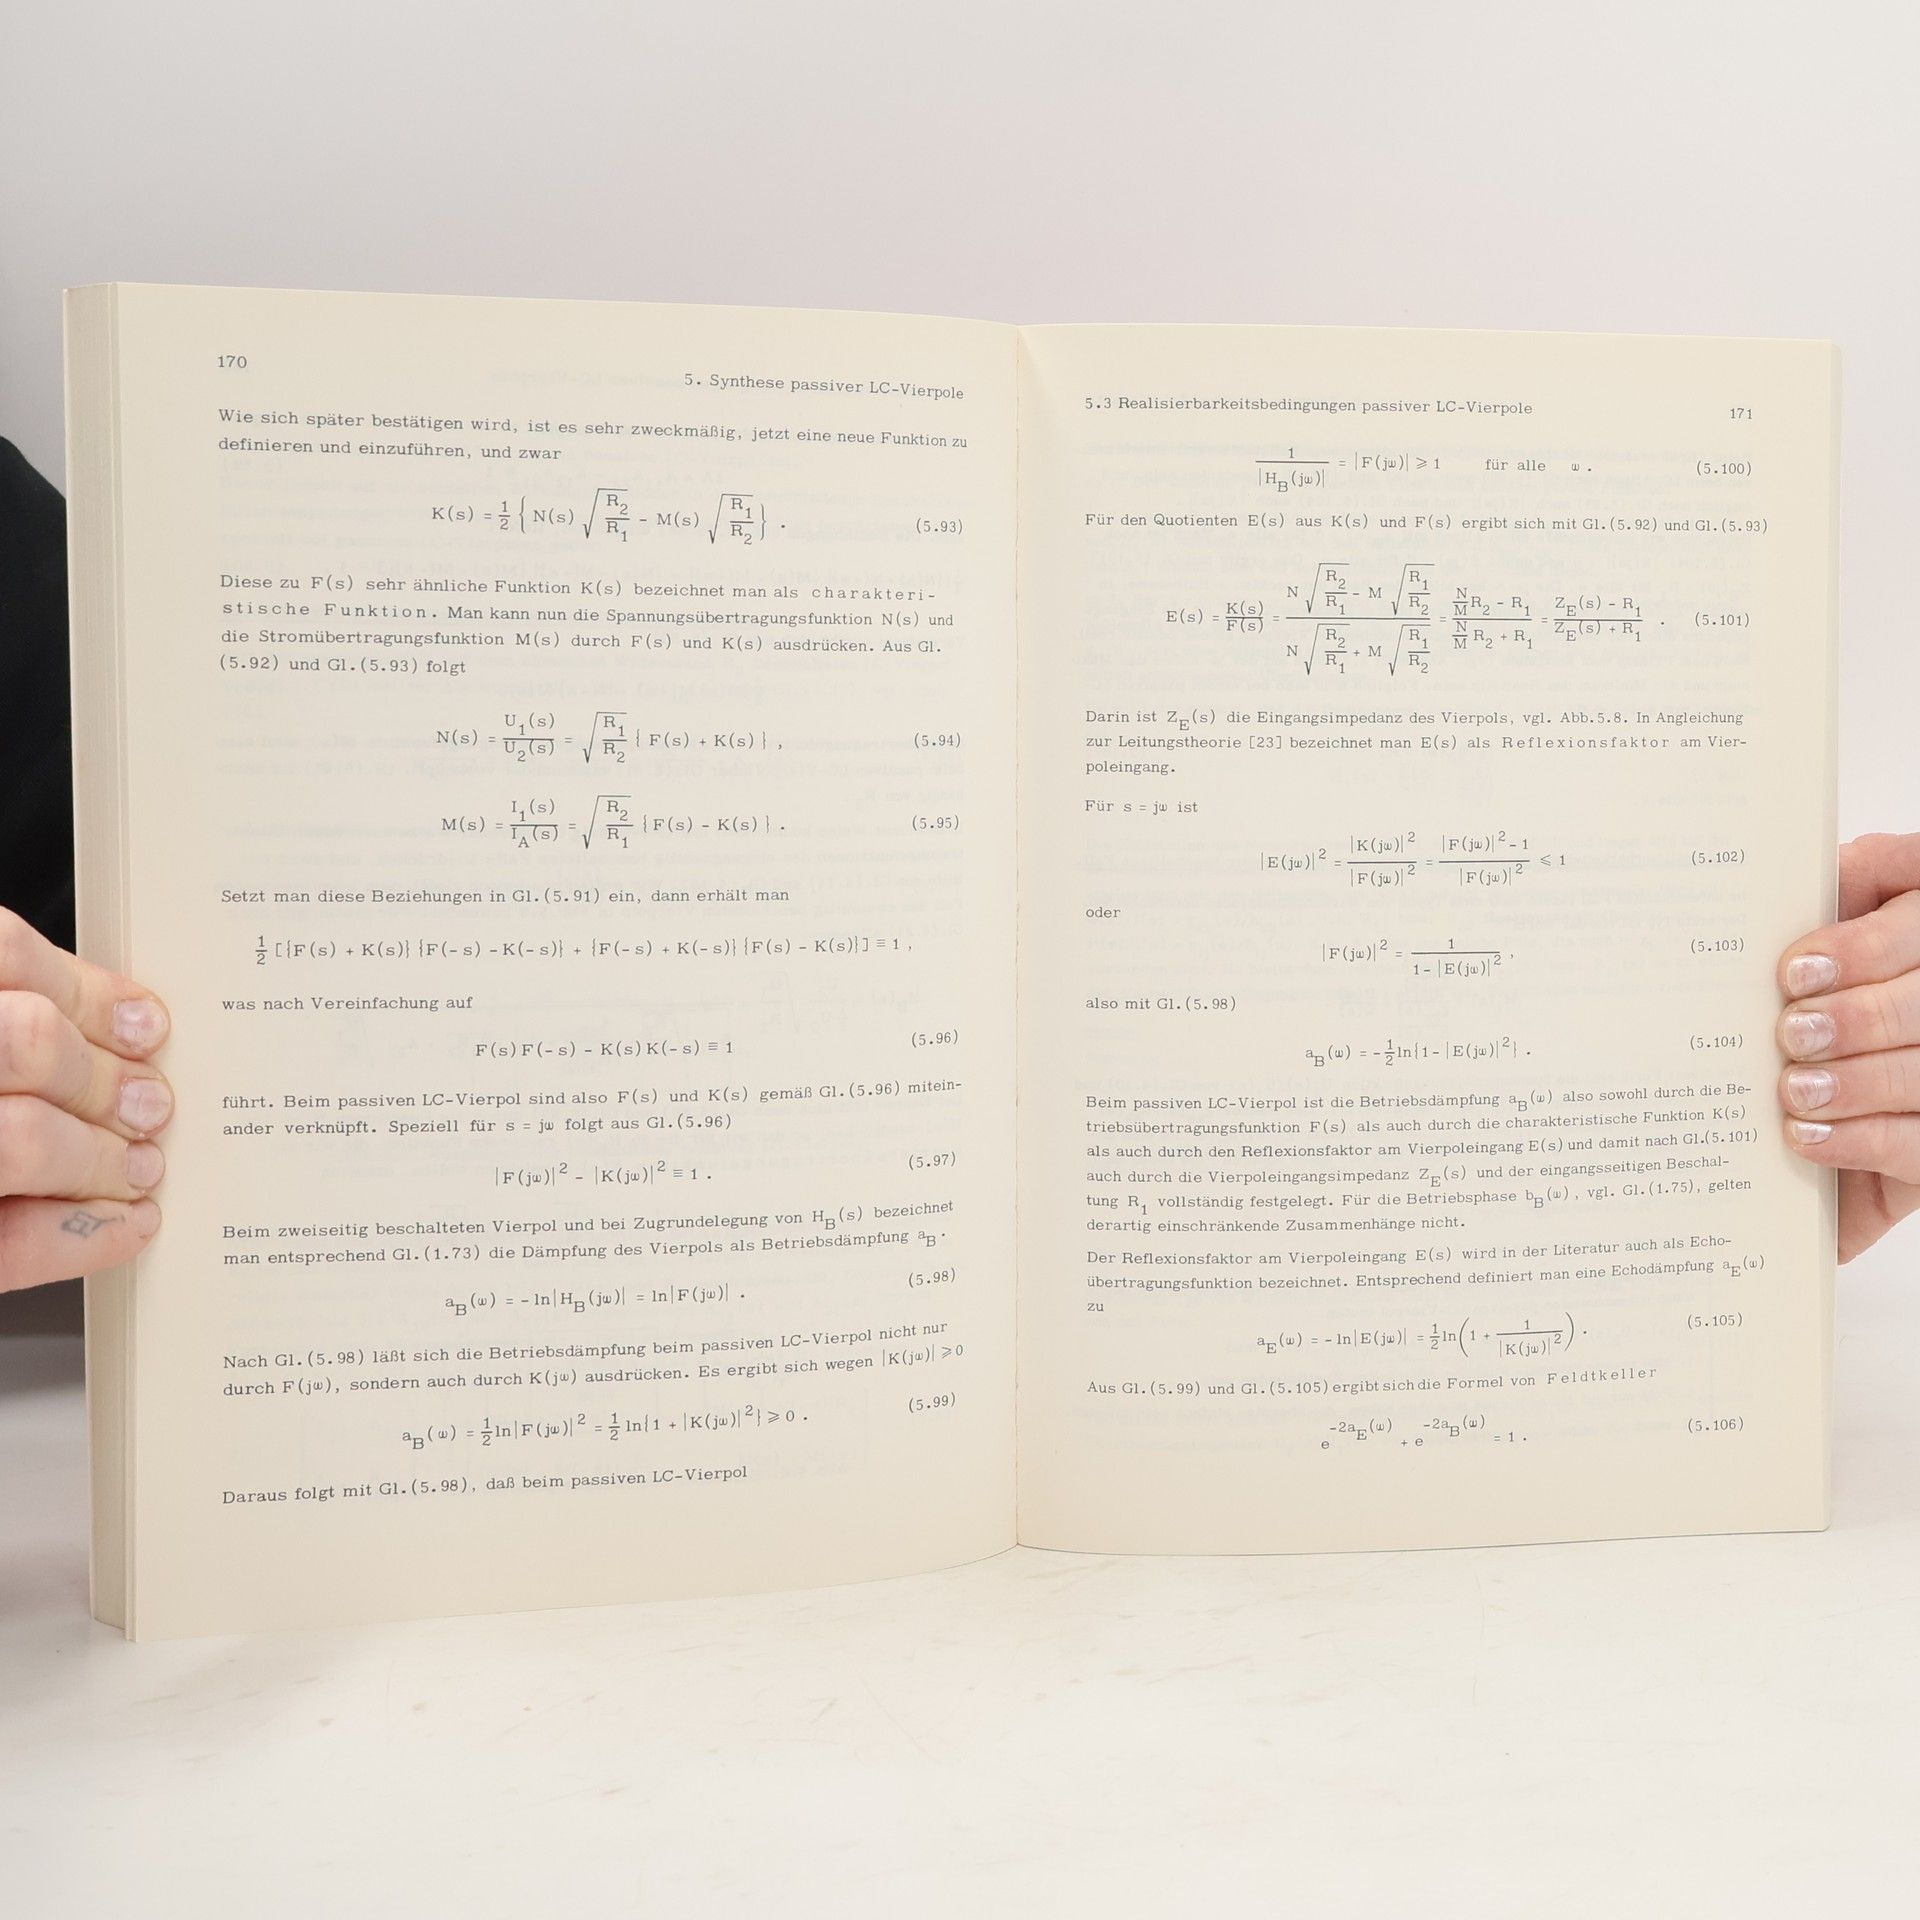 170
5. Synthese passiver LC-Vierpole
Wie sich später bestätigen wird, ist es sehr zweckmäßig, jetzt eine neue Funktion zu
definieren und einzuführen, und zwar
K(s) = 1/2 { N(s) √(R₂/R₁) - M(s) √(R₁/R₂) } . (5.93)
Diese zu F(s) sehr ähnliche Funktion K(s) bezeichnet man als charakteri-
stische Funktion. Man kann nun die Spannungsübertragungsfunktion N(s) und
die Stromübertragungsfunktion M(s) durch F(s) und K(s) ausdrücken. Aus Gl.
(5.92) und Gl.(5.93) folgt
N(s) = U₁(s)/U₂(s) = √(R₁/R₂) { F(s) + K(s) } , (5.94)
M(s) = I₁(s)/I_A(s) = √(R₂/R₁) { F(s) - K(s) } . (5.95)
Setzt man diese Beziehungen in Gl.(5.91) ein, dann erhält man
1/2 [{F(s) + K(s)} {F(-s) - K(-s)} + {F(-s) + K(-s)} {F(s) - K(s)}] ≡ 1 ,
was nach Vereinfachung auf
F(s)F(-s) - K(s)K(-s) ≡ 1 (5.96)
führt. Beim passiven LC-Vierpol sind also F(s) und K(s) gemäß Gl.(5.96) mitein-
ander verknüpft. Speziell für s = jω folgt aus Gl.(5.96)
|F(jω)|² - |K(jω)|² ≡ 1 . (5.97)
Beim zweiseitig beschalteten Vierpol und bei Zugrundelegung von H_B(s) bezeichnet
man entsprechend Gl.(1.73) die Dämpfung des Vierpols als Betriebsdämpfung a_B.
a_B(ω) = - ln|H_B(jω)| = ln|F(jω)| . (5.98)
Nach Gl.(5.98) läßt sich die Betriebsdämpfung beim passiven LC-Vierpol nicht nur
durch F(jω), sondern auch durch K(jω) ausdrücken. Es ergibt sich wegen |K(jω)| ⩾ 0
a_B(ω) = 1/2 ln|F(jω)|² = 1/2 ln{1 + |K(jω)|²} ⩾ 0 . (5.99)
Daraus folgt mit Gl.(5.98), daß beim passiven LC-Vierpol
5.3 Realisierbarkeitsbedingungen passiver LC-Vierpole
171
1/|H_B(jω)| = |F(jω)| ⩾ 1 für alle ω . (5.100)
Für den Quotienten E(s) aus K(s) und F(s) ergibt sich mit Gl.(5.92) und Gl.(5.93)
E(s) = K(s)/F(s) = (N √(R₂/R₁) - M √(R₁/R₂))/(N √(R₂/R₁) + M √(R₁/R₂)) = (N/M R₂ - R₁)/(N/M R₂ + R₁) = (Z_E(s) - R₁)/(Z_E(s) + R₁) . (5.101)
Darin ist Z_E(s) die Eingangsimpedanz des Vierpols, vgl. Abb.5.8. In Angleichung
zur Leitungstheorie [23] bezeichnet man E(s) als Reflexionsfaktor am Vier-
poleingang.
Für s = jω ist
|E(jω)|² = |K(jω)|²/|F(jω)|² = (|F(jω)|² - 1)/|F(jω)|² ⩽ 1 (5.102)
oder
|F(jω)|² = 1/(1 - |E(jω)|²) , (5.103)
also mit Gl.(5.98)
a_B(ω) = -1/2 ln{1 - |E(jω)|²} . (5.104)
Beim passiven LC-Vierpol ist die Betriebsdämpfung a_B(ω) also sowohl durch die Be-
triebsübertragungsfunktion F(s) als auch durch die charakteristische Funktion K(s)
als auch durch den Reflexionsfaktor am Vierpoleingang E(s) und damit nach Gl.(5.101)
auch durch die Vierpoleingangsimpedanz Z_E(s) und der eingangsseitigen Beschal-
tung R₁ vollständig festgelegt. Für die Betriebsphase b_B(ω), vgl. Gl.(1.75), gelten
derartig einschränkende Zusammenhänge nicht.
Der Reflexionsfaktor am Vierpoleingang E(s) wird in der Literatur auch als Echo-
übertragungsfunktion bezeichnet. Entsprechend definiert man eine Echodämpfung a_E(ω)
zu
a_E(ω) = - ln|E(jω)| = 1/2 ln(1 + 1/|K(jω)|²) . (5.105)
Aus Gl.(5.99) und Gl.(5.105) ergibt sich die Formel von Feldtkeller
e^(-2a_E(ω)) + e^(-2a_B(ω)) = 1 . (5.106)